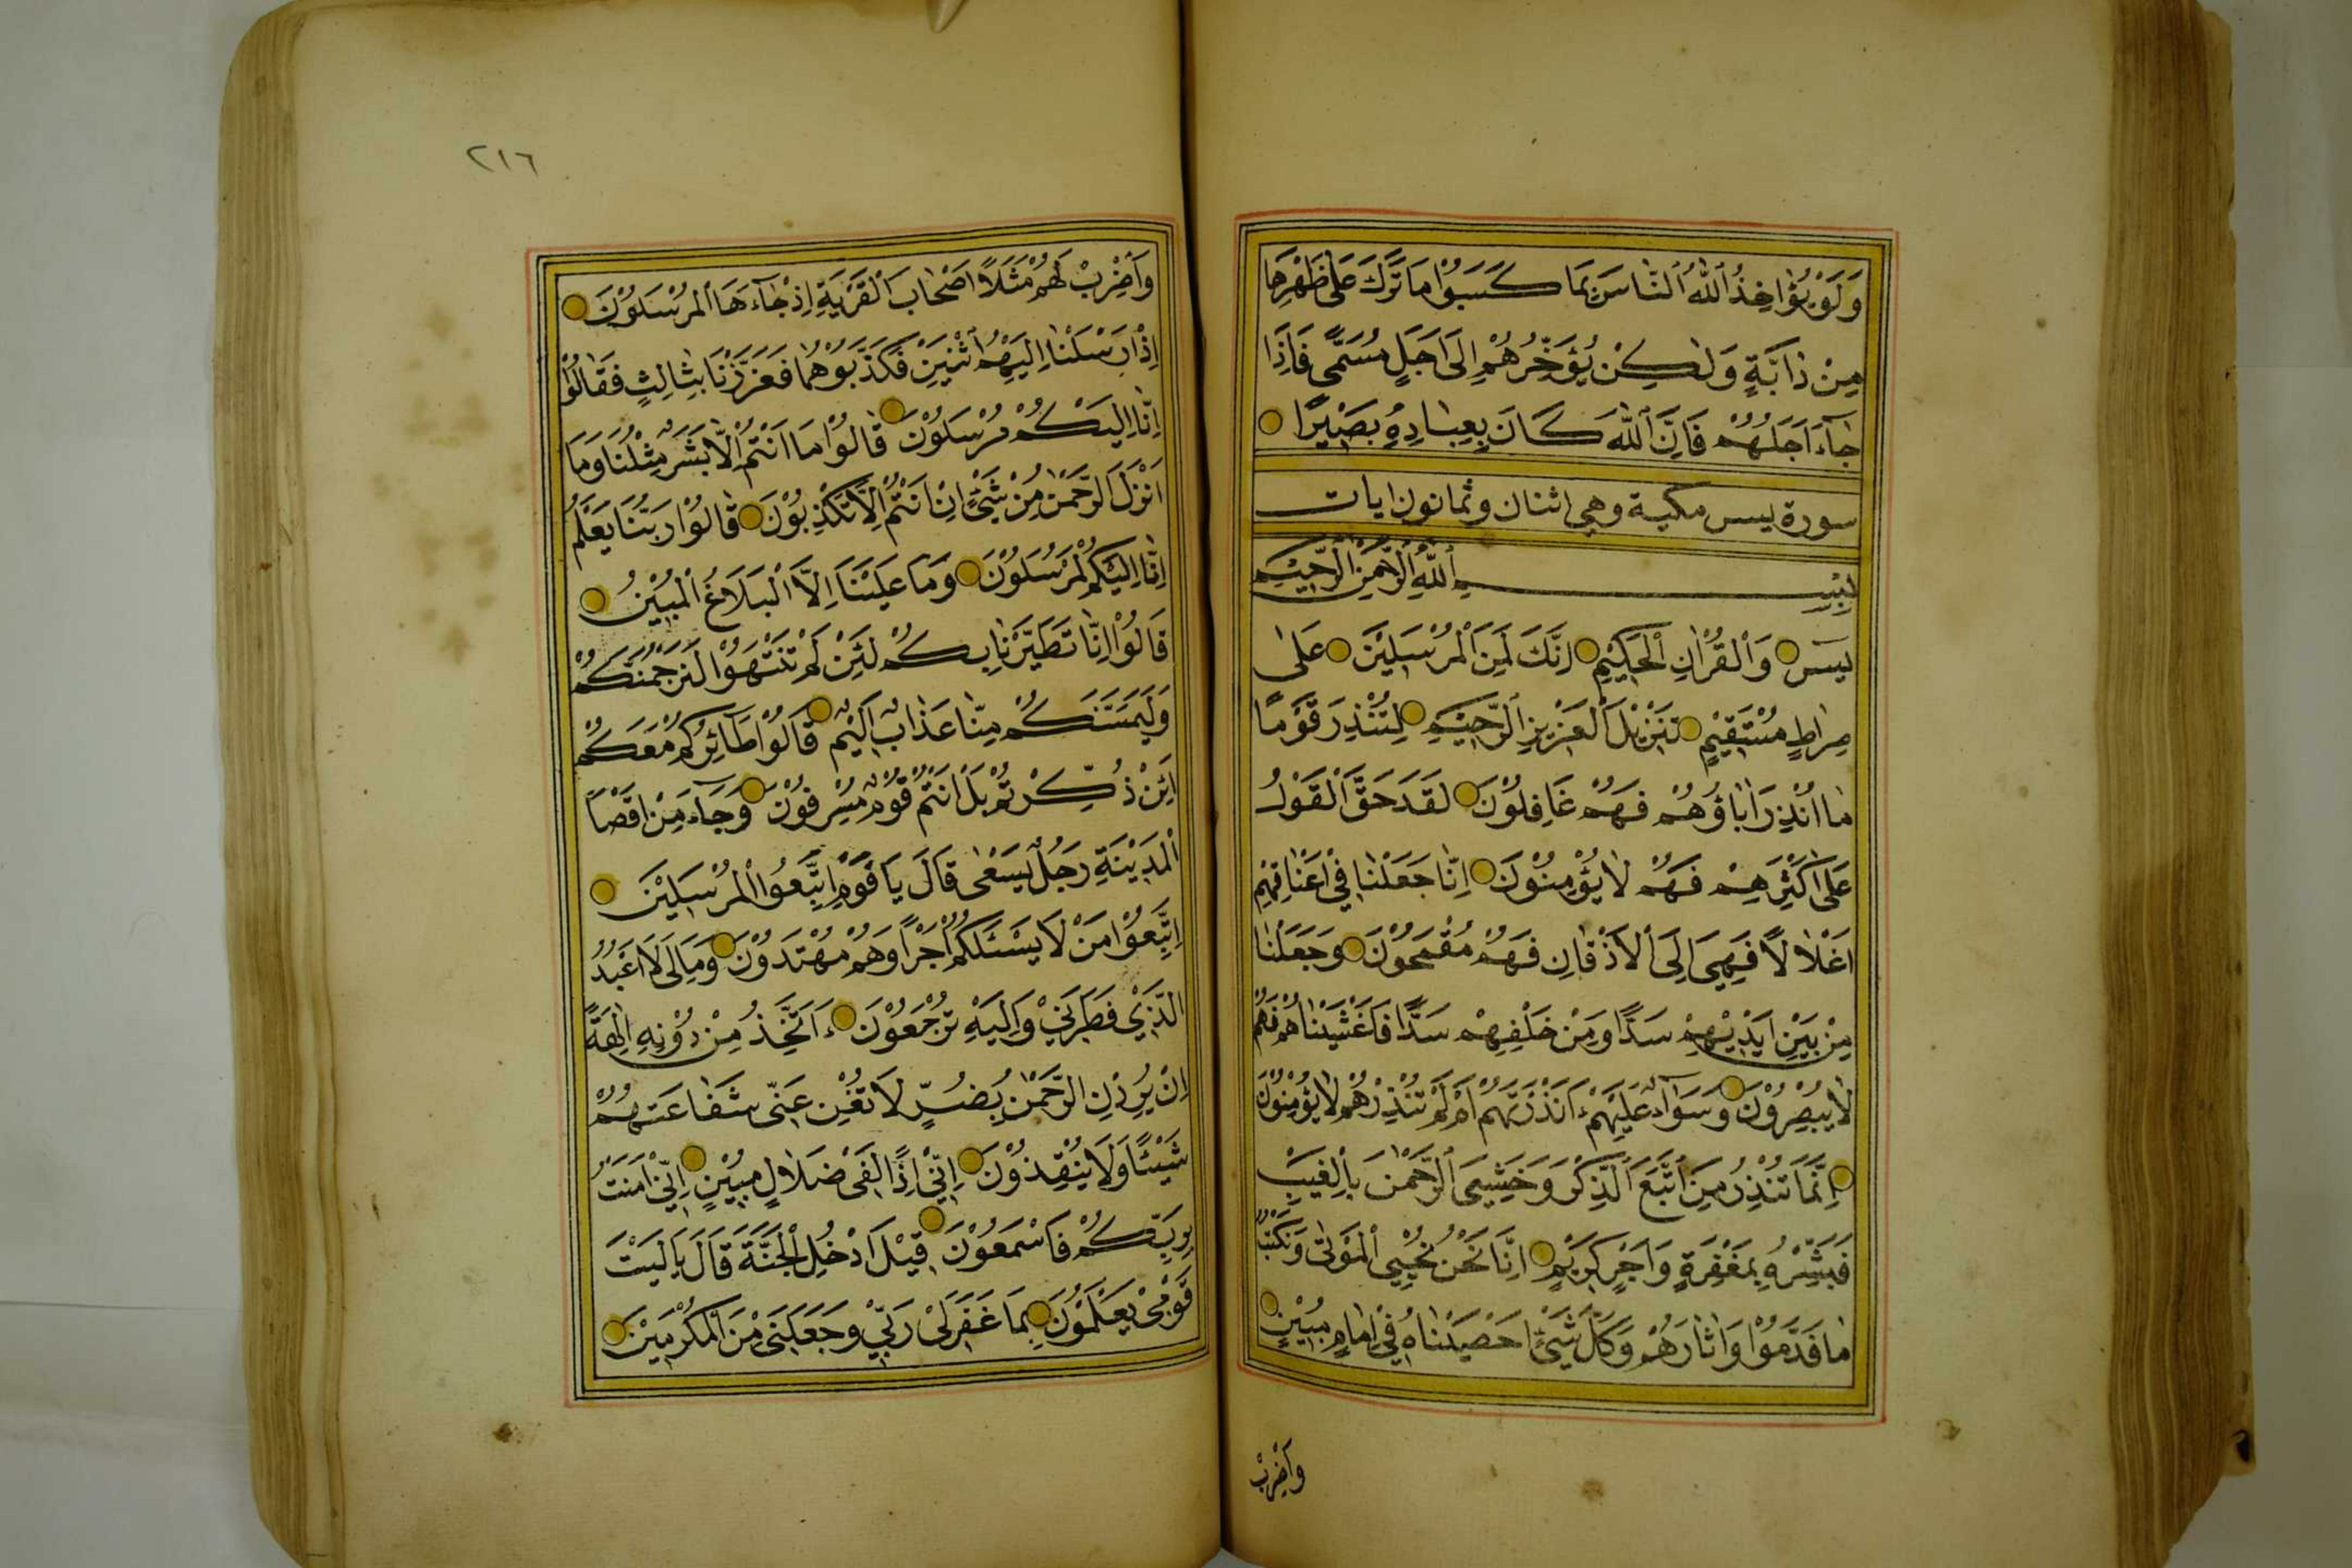 وَلَوْ يُؤَاخِذُ ٱللّٰهُ ٱلنَّاسَ بِمَا كَسَبُوْا مَا تَرَكَ عَلٰى ظَهْرِهَا
مِنْ دَابَّةٍ وَلٰكِنْ يُؤَخِّرُهُمْ اِلٰى اَجَلٍ مُسَمًّى فَاِذَا
جَآءَ اَجَلُهُمْ فَاِنَّ ٱللّٰهَ كَانَ بِعِبَادِهٖ بَصِيْرًا
سورة يس مكية وهي اثنان وثمانون ايات
بِسْمِ ٱللّٰهِ ٱلرَّحْمٰنِ ٱلرَّحِيْمِ
يٰسٓ وَٱلْقُرْاٰنِ ٱلْحَكِيْمِ اِنَّكَ لَمِنَ ٱلْمُرْسَلِيْنَ عَلٰى
صِرَاطٍ مُسْتَقِيْمٍ تَنْزِيْلَ ٱلْعَزِيْزِ ٱلرَّحِيْمِ لِتُنْذِرَ قَوْمًا
مَا اُنْذِرَ اٰبَاؤُهُمْ فَهُمْ غَافِلُوْنَ لَقَدْ حَقَّ ٱلْقَوْلُ
عَلٰى اَكْثَرِهِمْ فَهُمْ لَا يُؤْمِنُوْنَ اِنَّا جَعَلْنَا فِيْ اَعْنَاقِهِمْ
اَغْلَالًا فَهِيَ اِلَى ٱلْاَذْقَانِ فَهُمْ مُقْمَحُوْنَ وَجَعَلْنَا
مِنْ بَيْنِ اَيْدِيْهِمْ سَدًّا وَمِنْ خَلْفِهِمْ سَدًّا فَاَغْشَيْنَاهُمْ فَهُمْ
لَا يُبْصِرُوْنَ وَسَوَآءٌ عَلَيْهِمْ ءَاَنْذَرْتَهُمْ اَمْ لَمْ تُنْذِرْهُمْ لَا يُؤْمِنُوْنَ
اِنَّمَا تُنْذِرُ مَنِ ٱتَّبَعَ ٱلذِّكْرَ وَخَشِيَ ٱلرَّحْمٰنَ بِٱلْغَيْبِ
فَبَشِّرْهُ بِمَغْفِرَةٍ وَاَجْرٍ كَرِيْمٍ اِنَّا نَحْنُ نُحْيِي ٱلْمَوْتٰى وَنَكْتُبُ
مَا قَدَّمُوْا وَاٰثَارَهُمْ وَكُلَّ شَيْءٍ اَحْصَيْنَاهُ فِيْ اِمَامٍ مُبِيْنٍ
وَاضْرِبْ
٢١٦
وَاضْرِبْ لَهُمْ مَثَلًا اَصْحَابَ ٱلْقَرْيَةِ اِذْ جَآءَهَا ٱلْمُرْسَلُوْنَ
اِذْ اَرْسَلْنَا اِلَيْهِمُ ٱثْنَيْنِ فَكَذَّبُوْهُمَا فَعَزَّزْنَا بِثَالِثٍ فَقَالُوْا
اِنَّا اِلَيْكُمْ مُرْسَلُوْنَ قَالُوْا مَا اَنْتُمْ اِلَّا بَشَرٌ مِثْلُنَا وَمَا
اَنْزَلَ ٱلرَّحْمٰنُ مِنْ شَيْءٍ اِنْ اَنْتُمْ اِلَّا تَكْذِبُوْنَ قَالُوْا رَبُّنَا يَعْلَمُ
اِنَّا اِلَيْكُمْ لَمُرْسَلُوْنَ وَمَا عَلَيْنَا اِلَّا ٱلْبَلَاغُ ٱلْمُبِيْنُ
قَالُوْا اِنَّا تَطَيَّرْنَا بِكُمْ لَئِنْ لَمْ تَنْتَهُوْا لَنَرْجُمَنَّكُمْ
وَلَيَمَسَّنَّكُمْ مِنَّا عَذَابٌ اَلِيْمٌ قَالُوْا طَآئِرُكُمْ مَعَكُمْ
اَئِنْ ذُكِّرْتُمْ بَلْ اَنْتُمْ قَوْمٌ مُسْرِفُوْنَ وَجَآءَ مِنْ اَقْصَا
ٱلْمَدِيْنَةِ رَجُلٌ يَسْعٰى قَالَ يَا قَوْمِ اتَّبِعُوا ٱلْمُرْسَلِيْنَ
اِتَّبِعُوْا مَنْ لَا يَسْئَلُكُمْ اَجْرًا وَهُمْ مُهْتَدُوْنَ وَمَا لِيَ لَا اَعْبُدُ
الَّذِيْ فَطَرَنِيْ وَاِلَيْهِ تُرْجَعُوْنَ ءَاَتَّخِذُ مِنْ دُوْنِهٖ اٰلِهَةً
اِنْ يُرِدْنِ الرَّحْمٰنُ بِضُرٍّ لَا تُغْنِ عَنِّيْ شَفَاعَتُهُمْ
شَيْئًا وَلَا يُنْقِذُوْنَ اِنِّيْ اِذًا لَفِيْ ضَلَالٍ مُبِيْنٍ اِنِّيْ اٰمَنْتُ
بِرَبِّكُمْ فَاسْمَعُوْنَ قِيْلَ ادْخُلِ ٱلْجَنَّةَ قَالَ يَا لَيْتَ
قَوْمِيْ يَعْلَمُوْنَ بِمَا غَفَرَ لِيْ رَبِّيْ وَجَعَلَنِيْ مِنَ ٱلْمُكْرَمِيْنَ